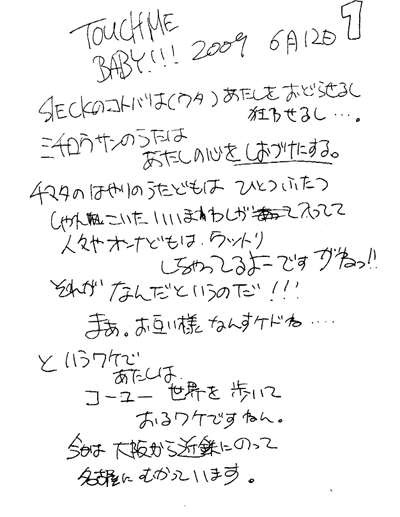 1
TOUCH ME
BABY!!! 2009 6月12日
SLECKのコトバは(ウタ)あたしをおどらせるし
狂わせるし…。
ミチロウサンのうたは
あたしの心をしおづけにする。
チマタのはやりのうたどもは ひとつふたつ
しゃれこいた いいまわしが 入ってて
人々や オンナどもは ウットリ
しちゃってるよーですがねっ!!
それが なんだというのだ!!!
まぁ。お互い様となんすケドね…..
というワケで
あたしは.
コーユー 世界を 歩いて
おるワケですねん。
今は 大阪から近鉄にのって
名古屋にむかっています。